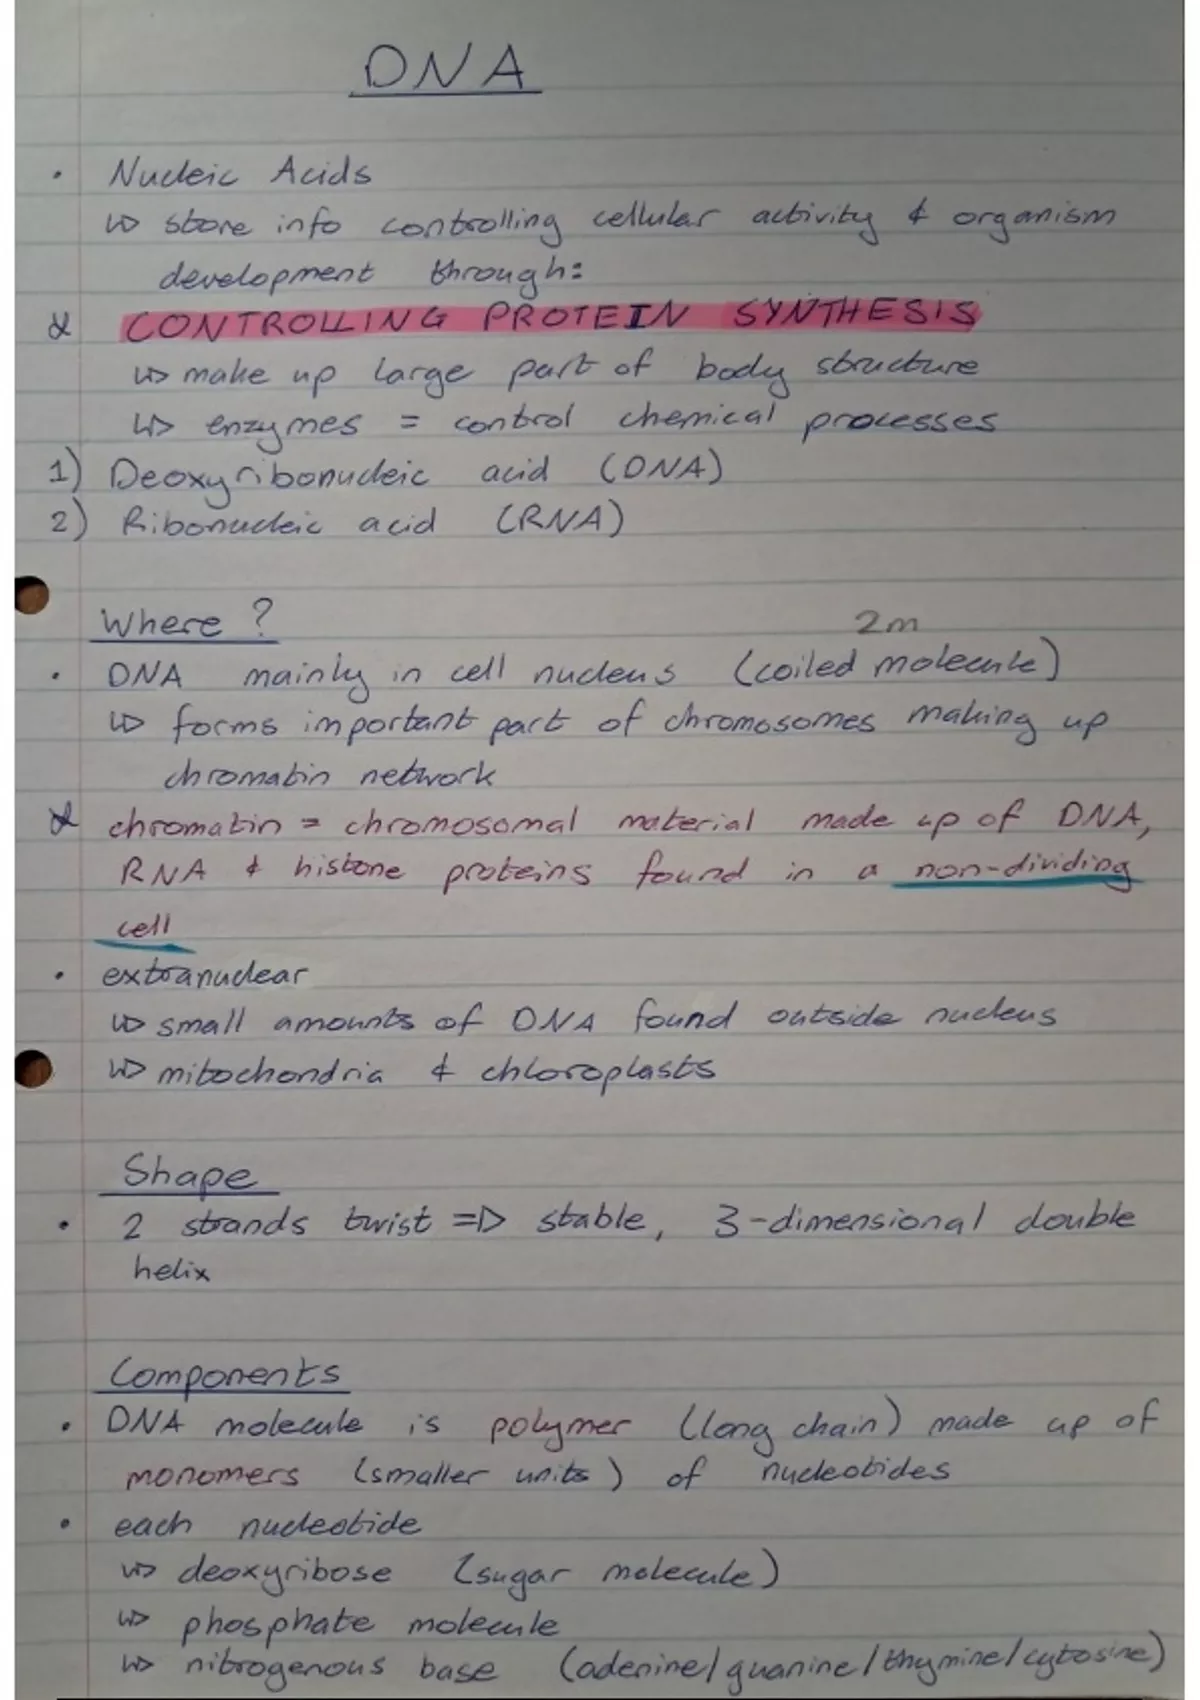 DNA
• Nucleic Acids
↳ store info controlling cellular activity & organism
development through:
* CONTROLLING PROTEIN SYNTHESIS
↳ make up large part of body structure
↳ enzymes = control chemical processes
1) Deoxyribonucleic acid (DNA)
2) Ribonucleic acid (RNA)
Where?
2m
• DNA mainly in cell nucleus (coiled molecule)
↳ forms important part of chromosomes making up
chromatin network
* chromatin = chromosomal material made up of DNA,
RNA & histone proteins found in a non-dividing
cell
• extranuclear
↳ small amounts of DNA found outside nucleus
↳ mitochondria & chloroplasts
Shape
• 2 strands twist => stable, 3-dimensional double
helix
Components
• DNA molecule is polymer (long chain) made up of
monomers (smaller units) of nucleotides
• each nucleotide
↳ deoxyribose (sugar molecule)
↳ phosphate molecule
↳ nitrogenous base (adenine/guanine/thymine/cytosine)